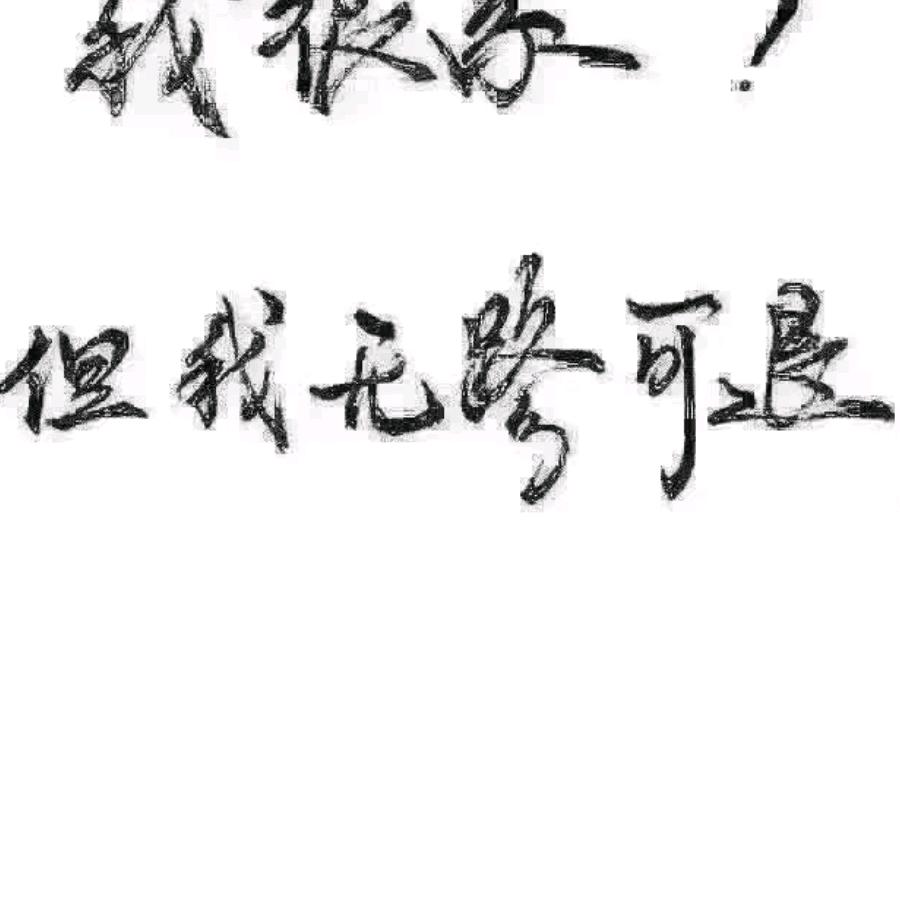 我很好！
但我无路可退